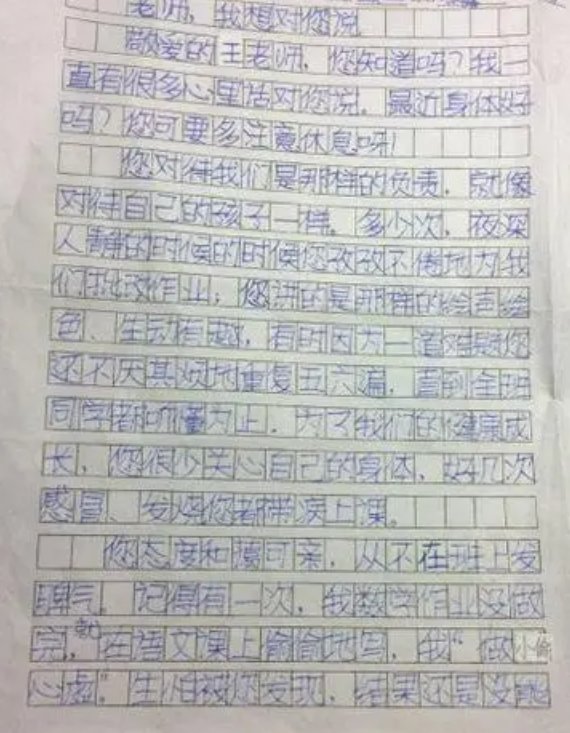 老师，我想对您说
敬爱的王老师，您知道吗？我一
直有很多心里话对您说。最近身体好
吗？您可要多注意休息呀！
您对待我们是那样的负责，就像
对待自己的孩子一样。多少次，夜深
人静的时候的时候您孜孜不倦地为我
们批改作业；您讲的是那样的绘声绘
色、生动有趣，有时因为一道难题您
还不厌其烦地重复五六遍，直到全班
同学都听懂为止，为了我们的健康成
长，您很少关心自己的身体，好几次
感冒、发烧您都带病上课。
您态度和蔼可亲，从不在班上发
脾气。记得有一次，我数学作业没做
完，就在语文课上偷偷地写，我“做小偷
心虚”生怕被您发现，结果还是没能